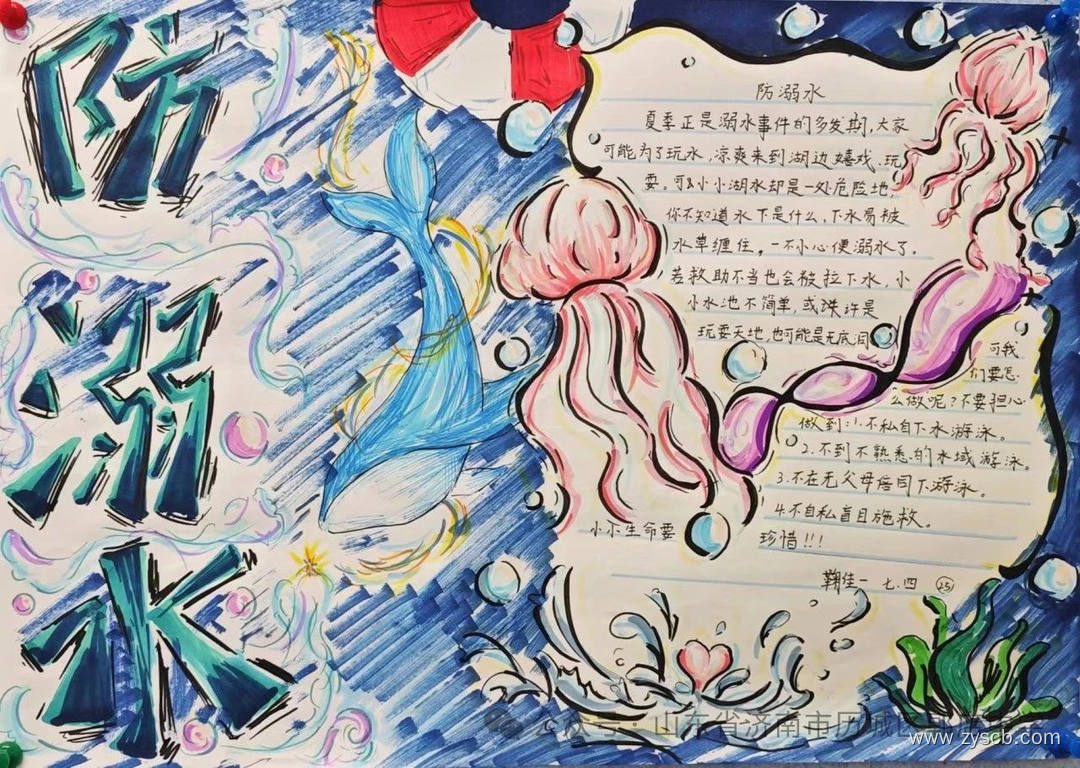 防溺水
防溺水
夏季正是溺水事件的多发期,大家
可能为了玩水,凉爽来到湖边嬉戏、玩
耍。可小小湖水却是一处危险地,
你不知道水下是什么,下水易被
水草缠住。一不小心便溺水了。
若救助不当也会被拉下水,小
小水池不简单,或许是
玩耍天地,也可能是无底洞
可我
们要怎
么做呢?不要担心
做到:1.不私自下水游泳。
2.不到不熟悉的水域游泳。
3.不在无父母陪同下游泳。
4.不自私盲目施救。
小小生命要
珍惜!!!
鞠佳一 七.四 25
公众号·山东省济南市历城区
www.zyscb.com